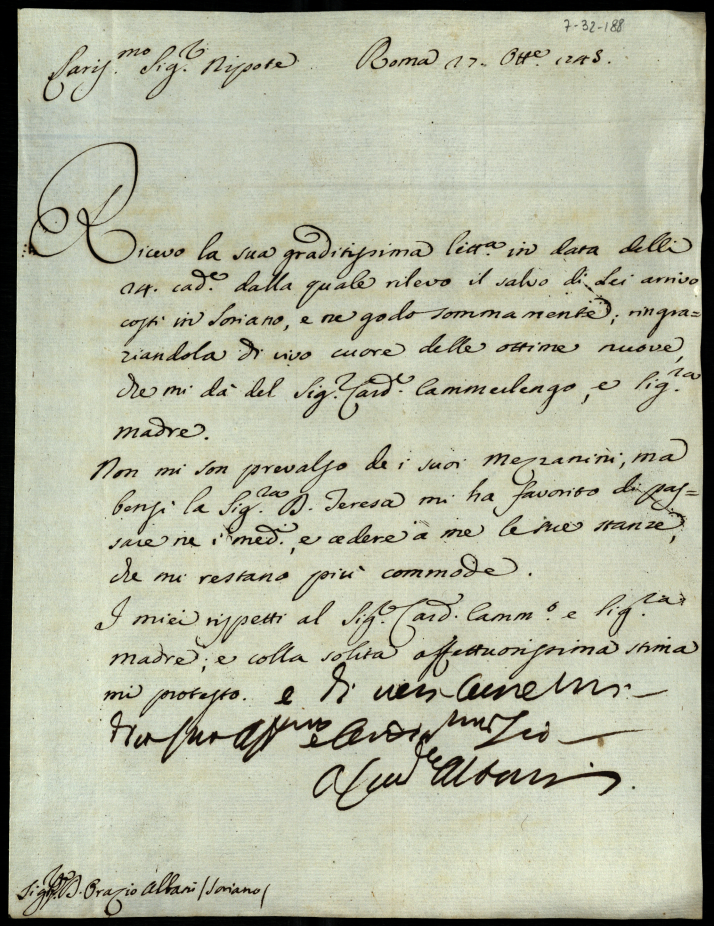 7-32-188
Cariss.mo Sig.r Nipote Roma 27. Ott.e 1745.
Ricevo la sua graditissima lett.a in data delli
24. cad.e dalla quale rilevo il salvo di Lei arrivo
costì in Soriano, e ne godo sommamente; ringra=
ziandola di vivo cuore delle ottime nuove,
che mi dà del Sig.r Card.e Cammerlengo, e Sig.ra
madre.
Non mi son prevalso de i suoi mezzanini, ma
bensì la Sig.ra D. Teresa mi ha favorito di pas=
sare ne i med.i, e cedere à me le sue stanze,
che mi restano più commode.
I miei rispetti al Sig.r Card. Camm.o e Sig.ra
madre; e colla solita affettuosissima stima
mi protesto. e di vero cuore
suo aff.mo Zio
Aless.dro Albani
Sig.r D. Orazio Albani / Soriano /